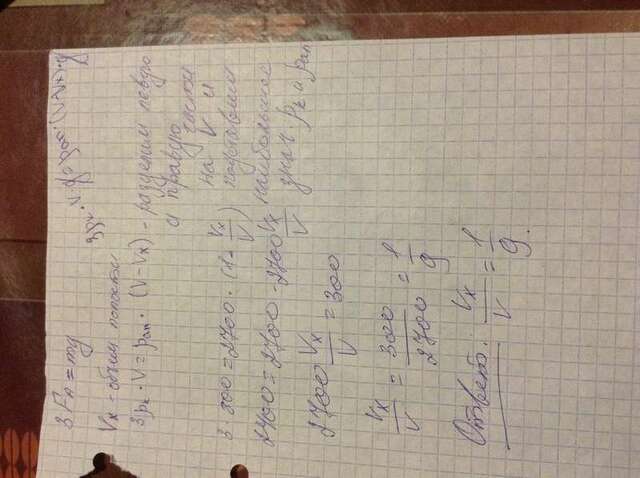 3 F_A = mg
3ρ_к · V · g = ρ_ал · (V - V_x) · g
V_x - объём полости
3ρ_к · V = ρ_ал · (V - V_x) - разделим левую
и правую части
на V и
подставим
3 · 800 = 2700 · (1 - V_x/V)
2400 = 2700 - 2700 V_x/V
ρ_к и ρ_ал
2700 V_x/V = 300
V_x/V = 300/2700 = 1/9
Ответ: V_x/V = 1/9.